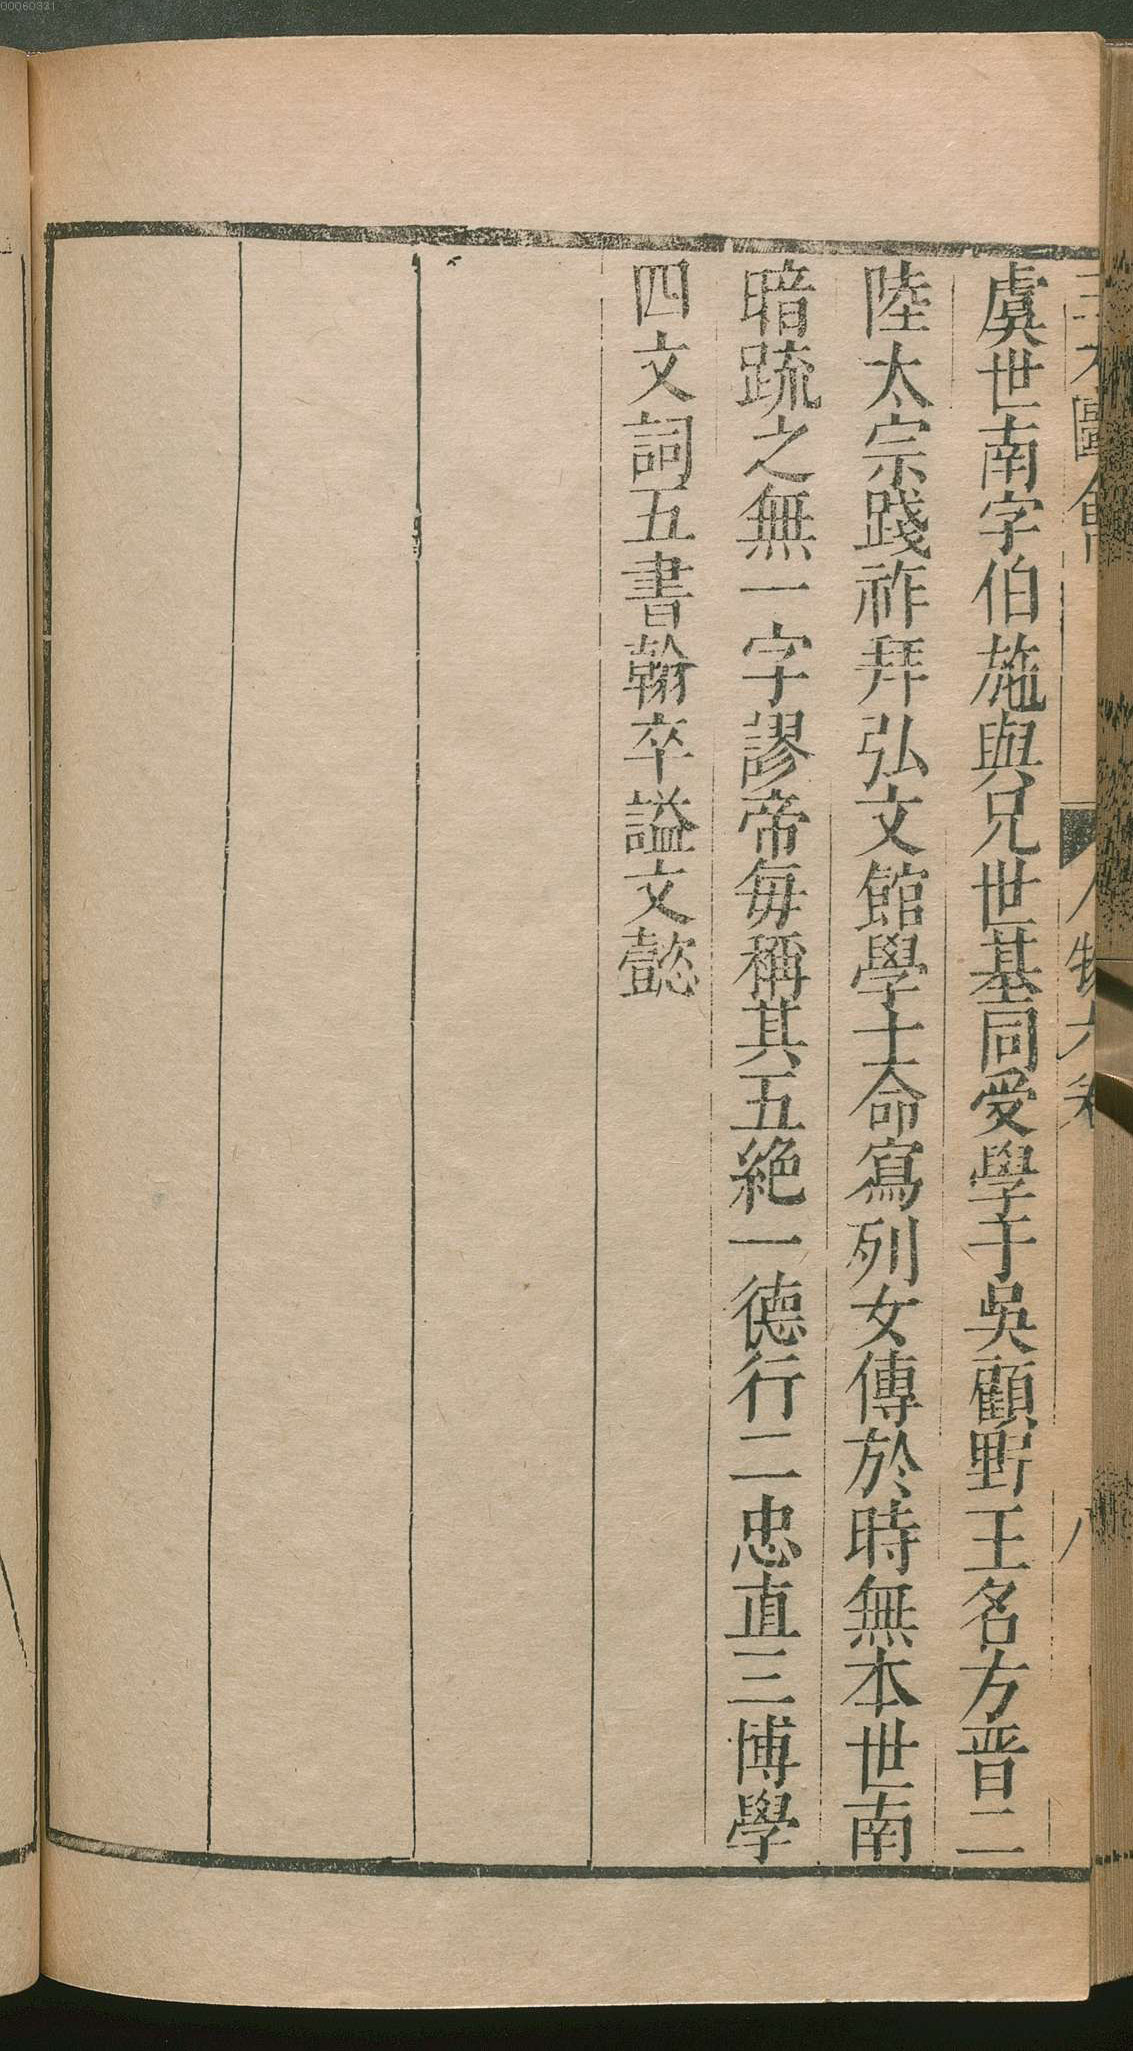 虞世南字伯施與兄世基同受學于吳顧野王名方晉二
陸太宗踐祚拜弘文館學士命寫列女傳於時無本世南
暗疏之無一字謬帝每稱其五絕一德行二忠直三博學
四文詞五書翰卒謚文懿
三才圖會 人物六卷 八
00060331